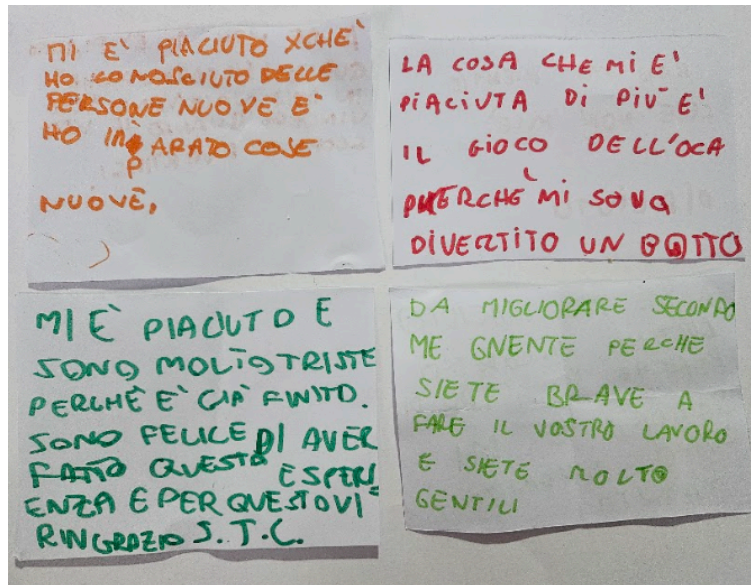 MI E' PIACIUTO XCHE'
HO CONOSCIUTO DELLE
PERSONE NUOVE E'
HO INPARATO COSE
NUOVE,
LA COSA CHE MI E'
PIACIUTA DI PIU' E'
IL GIOCO DELL'OCA
PHERCHÈ MI SONO
DIVERTITO UN BOTTO
MI E' PIACIUTO E
SONO MOLTO TRISTE
PERCHÈ E' GIÀ FINITO.
SONO FELICE DI AVER
FATTO QUESTA ESPERI
ENZA E PER QUESTO VI
RINGRAZIO S.T.C.
DA MIGLIORARE SECONDO
ME GNENTE PERCHE
SIETE BRAVE A
FARE IL VOSTRO LAVORO
E SIETE MOLTO
GENTILI